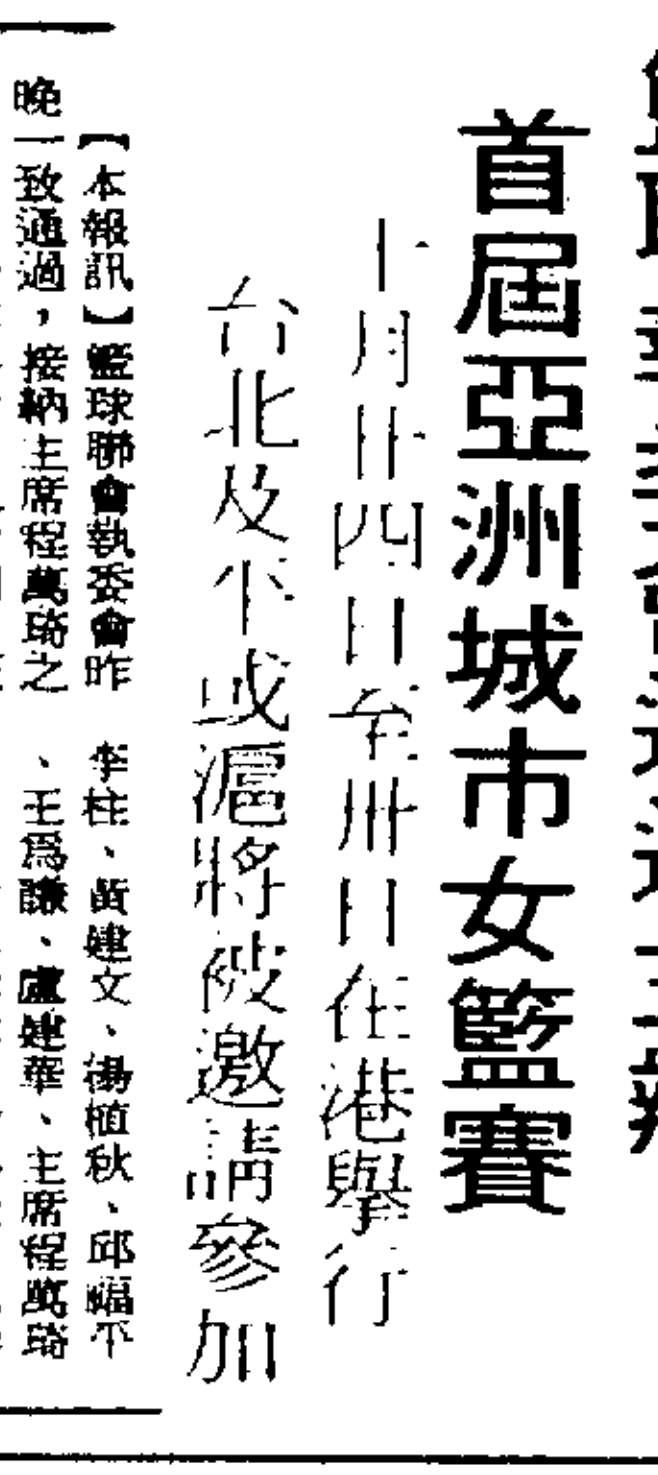 首屆亞洲城市女籃賽
十月廿四日至卅日在港舉行
台北及平或滬將被邀請參加
【本報訊】籃球聯會執委會昨
晚一致通過，接納主席程萬琦之
李柱、黃建文、湯植秋、邱福平
、王爲謙、盧建華、主席程萬琦